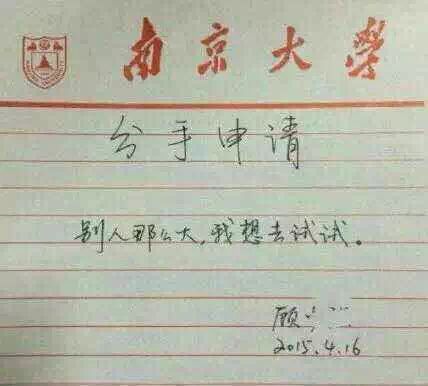 南京大学
分手申请
别人那么大，我想去试试。
顾
2015.4.16